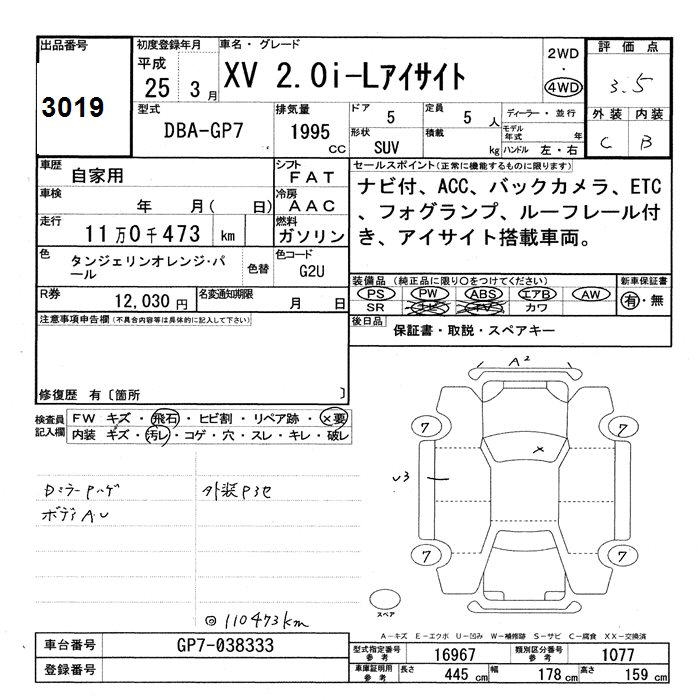 出品番号
3019
初度登録年月
平成
25 3 月
車名・グレード
XV 2.0i-Lアイサイト
2WD
・
4WD
評価点
3.5
外装 内装
C B
型式
DBA-GP7
排気量
1995
CC
ドア
5
定員
5 人
形状
SUV
積載
kg
ディーラー・並行
モデル年式 年
ハンドル 左・右
車歴
自家用
シフト
FAT
車検
年 月( 日)
冷房
AAC
走行
11万0千473 km
燃料
ガソリン
色
タンジェリンオレンジ・パ
ール
色替
色コード
G2U
R券
12,030円
名変通知期限
月 日
セールスポイント(正常に機能するものに限ります)
ナビ付、ACC、バックカメラ、ETC
、フォグランプ、ルーフレール付
き、アイサイト搭載車両。
装備品 (純正品に限り○をつけてください)
新車保証書
PS PW ABS エアB AW
有・無
SR ナビ TV カワ
後日品
保証書・取説・スペアキー
注意事項申告欄(不具合内容等は具体的に記入して下さい)
修復歴 有〔箇所 〕
検査員
記入欄
FW キズ・飛石・ヒビ割・リペア跡・×要
内装 キズ・汚レ・コゲ・穴・スレ・キレ・破レ
Dミラーアハゲ
ボディA.U
外装P3セ
◎110473km
A2
7
7
U3
×
7
7
スペア
A-キズ E-エクボ U-凹み W-補修跡 S-サビ C-腐食 XX-交換済
車台番号
GP7-038333
登録番号
型式指定番号
参考
16967
類別区分番号
参考
1077
車庫証明用
参考
長さ 445 cm 幅 178 cm 高さ 159 cm